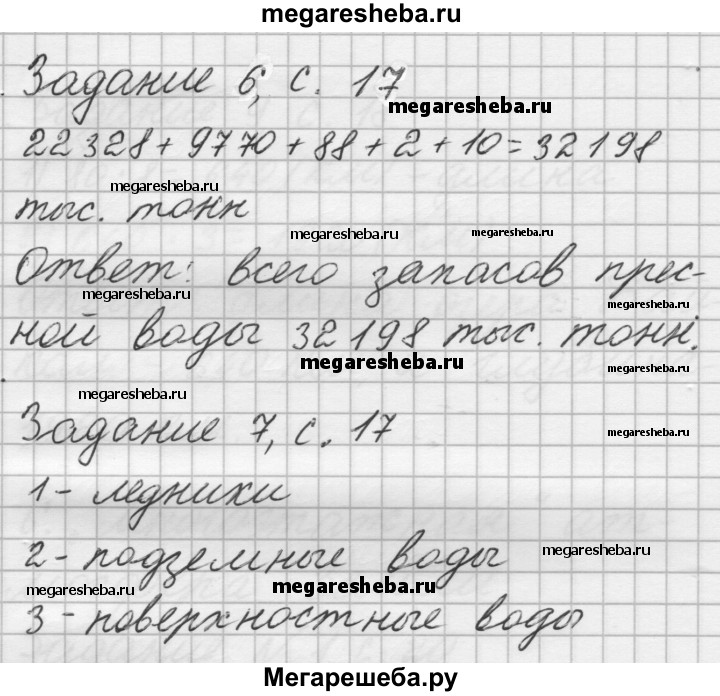 megaresheba.ru
Задание 6, с. 17
megaresheba.ru
22 328 + 9770 + 88 + 2 + 10 = 32 198
megaresheba.ru
тыс. тонн
megaresheba.ru
megaresheba.ru
Ответ: всего запасов прес-
megaresheba.ru
megaresheba.ru
ной воды 32 198 тыс. тонн.
megaresheba.ru
megaresheba.ru
megaresheba.ru
Задание 7, с. 17
megaresheba.ru
1 - ледники
2 - подземные воды
megaresheba.ru
megaresheba.ru
megaresheba.ru
3 - поверхностные воды
megaresheba.ru
Мегарешеба.ру